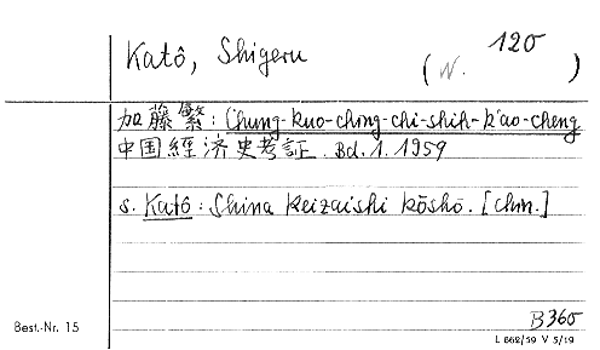 Katô, Shigeru
120
(N. )
加藤繁: Chung-kuo-ching-chi-shih-k'ao-cheng
中国經济史考証. Bd. 1. 1959
s. Katô: Shina Keizaishi kōshō. [chin.]
B360
Best.-Nr. 15
L 662/59 V 5/19